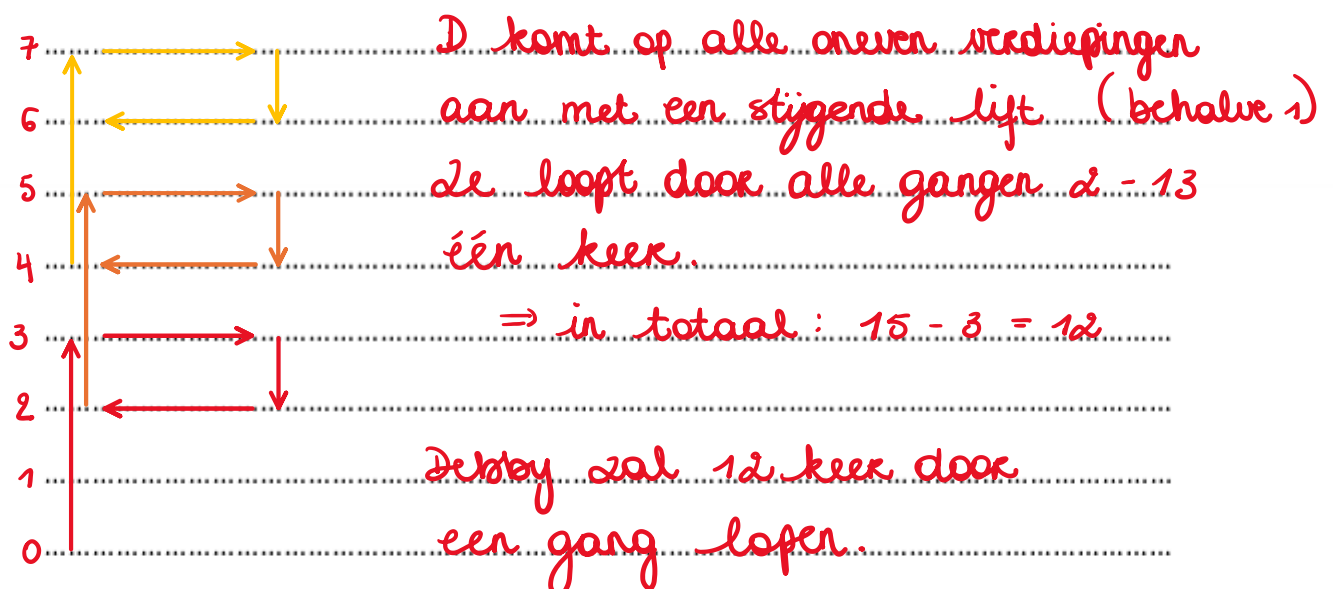 7 D komt op alle oneven verdiepingen
6 aan met een stijgende lift (behalve 1)
5 Ze loopt door alle gangen 2 - 13
4 één keer.
3 ⇒ in totaal : 15 - 3 = 12
2
1 Debby zal 12 keer door
0 een gang lopen.